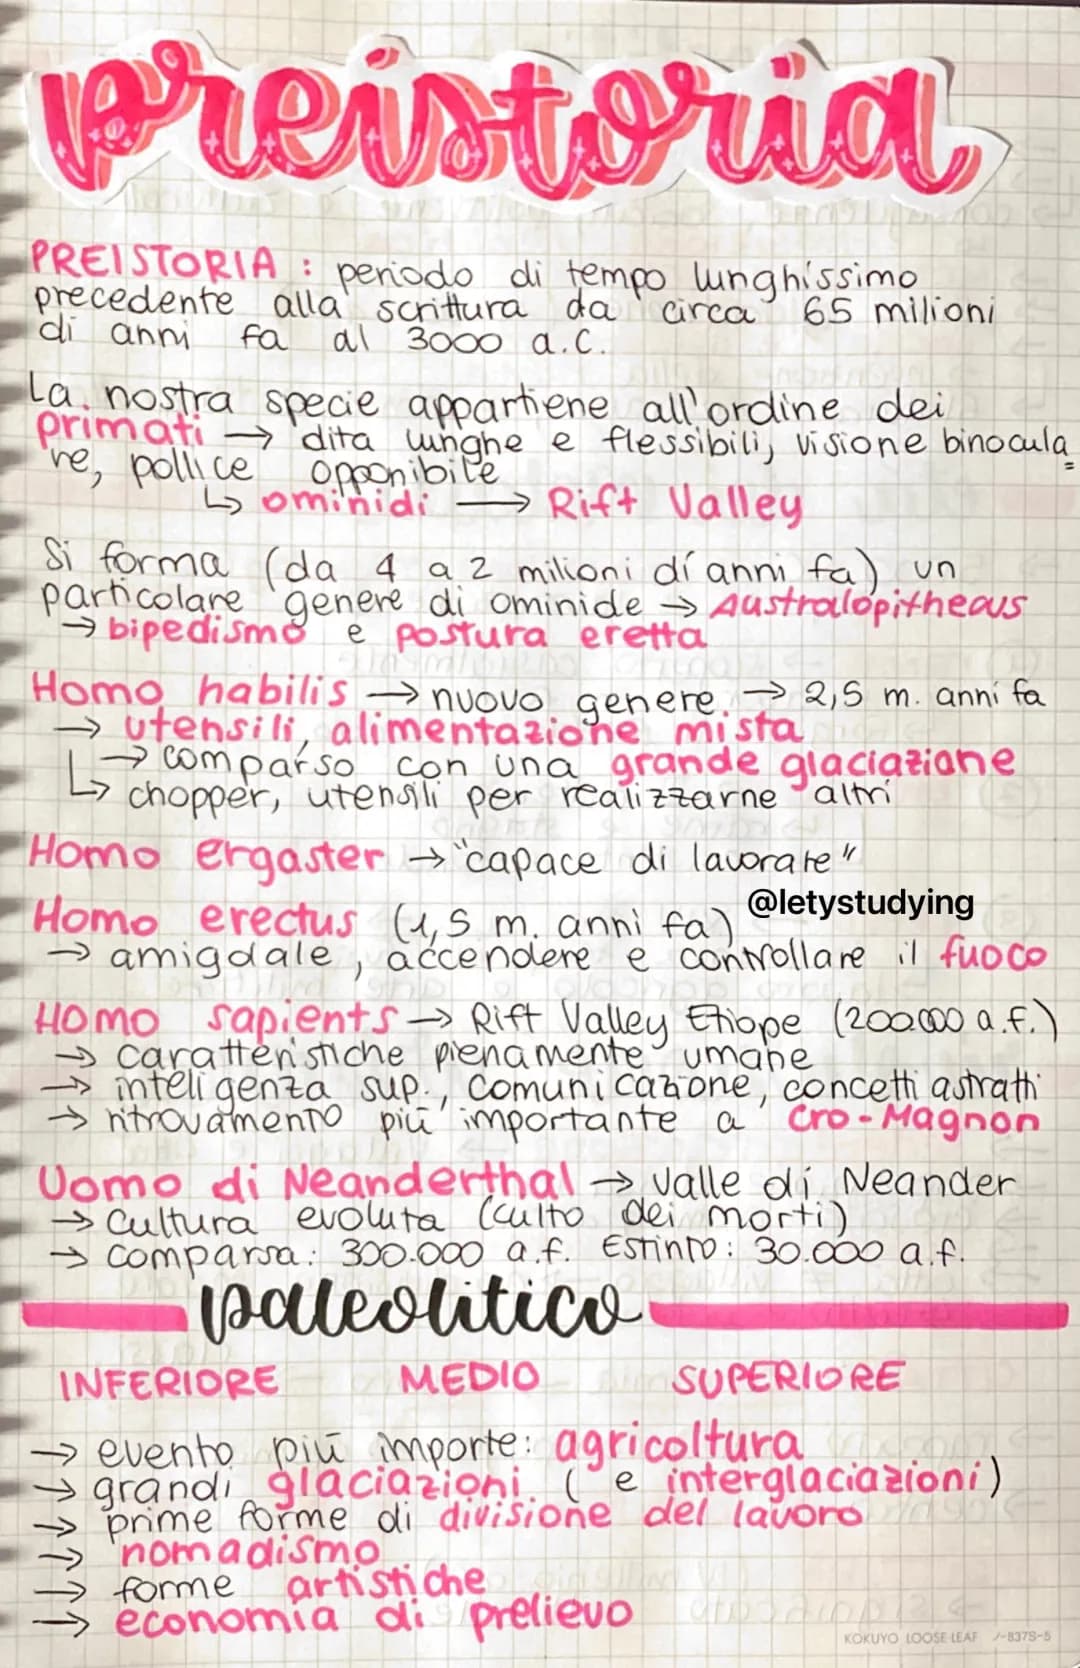 preistoria
PREISTORIA : periodo di tempo lunghissimo
precedente alla scrittura da circa 65 milioni
di anni fa al 3000 a.C.
La nostra specie appartiene all'ordine dei
primati → dita lunghe e flessibili, visione binocula
re, pollice opponibile
↳ ominidi → Rift Valley
Si forma (da 4 a 2 milioni di anni fa) un
particolare genere di ominide → Australopitheaus
→ bipedismo e postura eretta
Homo habilis → nuovo genere → 2,5 m. anni fa
→ utensili, alimentazione mista
→ comparso con una grande glaciazione
↳ chopper, utensili per realizzarne altri
Homo ergaster → "capace di lavorare"
@letystudying
Homo erectus (1,5 m. anni fa)
→ amigdale, accendere e controllare il fuoco
Homo sapients → Rift Valley Etiope (200.000 a.f.)
→ caratteristiche pienamente umane
→ inteligenza sup., comunicazione, concetti astratti
→ ritrovamento più importante a Cro-Magnon
Uomo di Neanderthal → valle di Neander
→ cultura evoluta (culto dei morti)
→ comparsa: 300.000 a.f. Estinto: 30.000 a.f.
paleolitico
INFERIORE MEDIO SUPERIORE
→ evento più importe: agricoltura
→ grandi glaciazioni (e interglaciazioni)
→ prime forme di divisione del lavoro
→ nomadismo
→ forme artistiche
→ economia di prelievo
KOKUYO LOOSE-LEAF ノ-837S-5